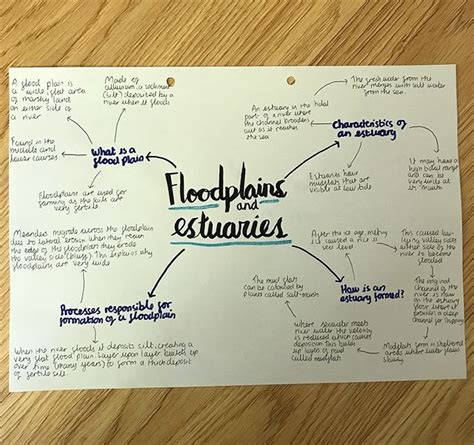 A flood plain is
a wide, flat area
of marshy land
on either side of
a river
Made of
alluvium, a sediment
(silt) deposited by a
river when it floods
What is a
flood plain
Found in the
middle and
lower courses
Floodplains are used for
farming as the soils are
very fertile
The fresh water from the
river merges with salt water
from the sea.
An estuary is the tidal
part of a river where
the channel broadens
out as it reaches
the sea
Characteristics of
an estuary
Estuaries have
mudflats that are
visible at low tide
It may have a
high tidal range
and can be
very wide at
its mouth
Floodplains
and
estuaries
Meanders migrate across the floodplain
due to lateral erosion. When they reach
the edge of the floodplain they erode
the valley side (bluffs). This explains why
floodplains are very wide
Processes responsible for
formation of a floodplain
When the river floods it deposits silt, creating a
very flat flood plain. Layer upon layer builds up
over time (many years) to form a thick deposit
of fertile silt
After the ice age, melting
ice caused a rise in
sea level
This caused low
lying valley sides
either side of the
river to
become flooded
The
original channel of
the river is now
in the estuary
floor where it
provides a
deep channel
for shipping
How is an
estuary formed?
The mud flats
can be colonised by
plants called salt-marsh
where seawater meets
river water the velocity
is reduced which causes
deposition. This builds
up layers of mud
called mudflats
Mudflats form in sheltered
areas where water flows
slowly